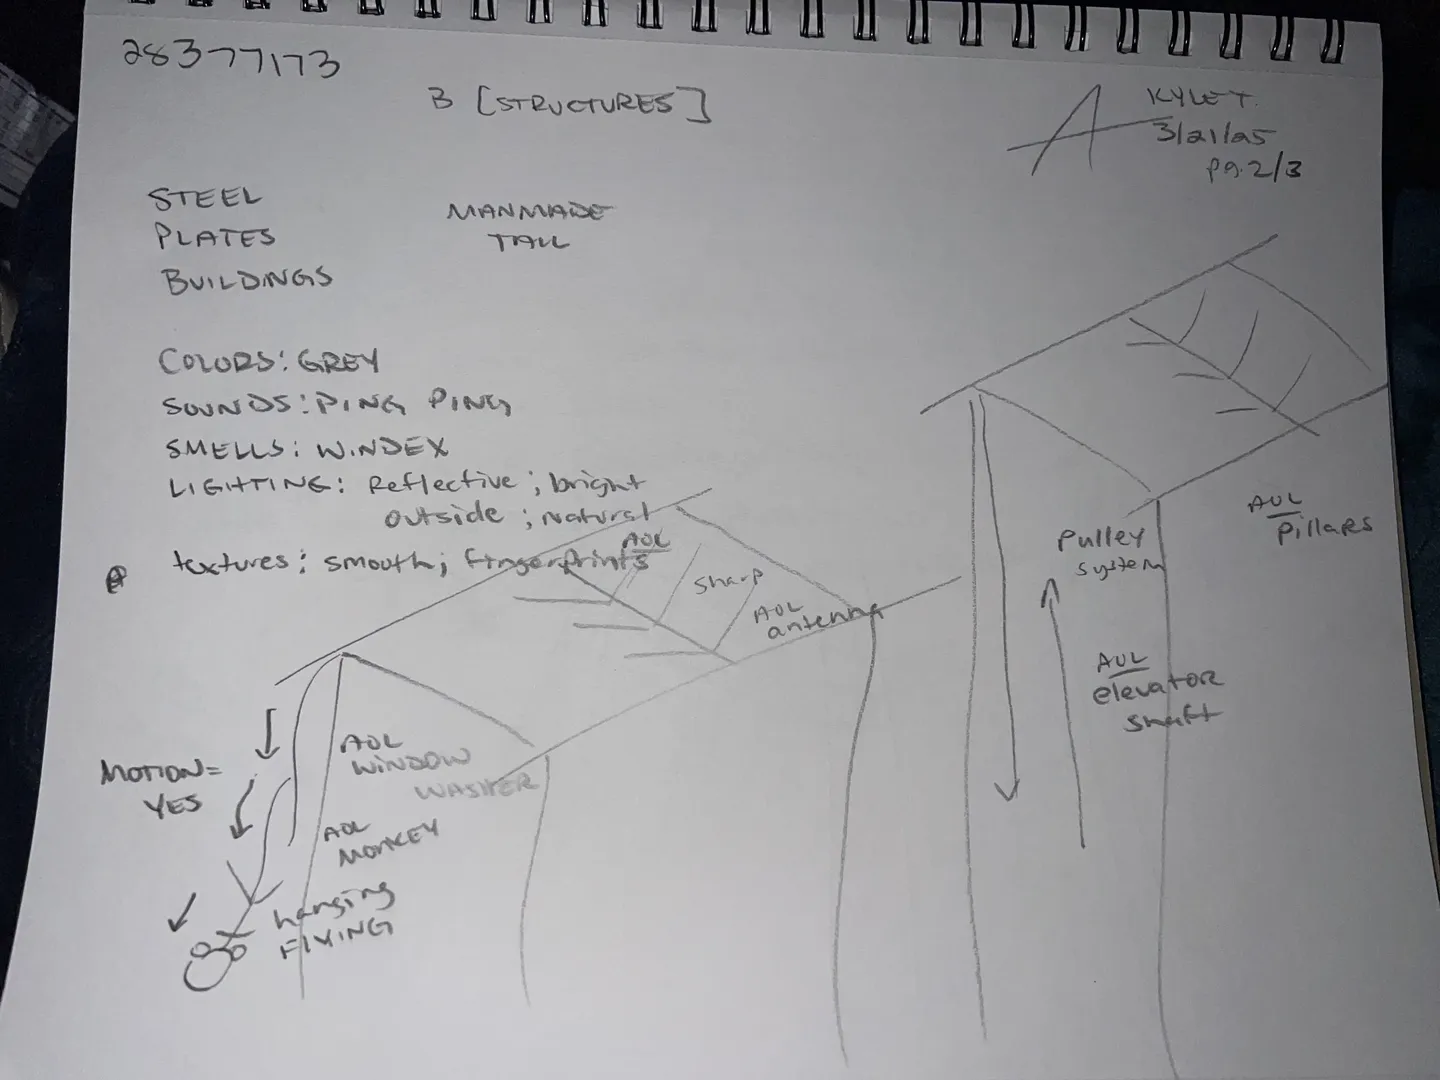 28377173
B [STRUCTURES]
A
KYLE T.
3/21/25
pg. 2/3
STEEL
PLATES
BUILDINGS
MANMADE
TALL
COLORS: GREY
SOUNDS: PING PING
SMELLS: WINDEX
LIGHTING: Reflective ; bright
outside ; natural
textures: smooth; fingerprints
AOL
Sharp
AOL
antenna
Pulley
system
AOL
pillars
AOL
elevator
shaft
MOTION=
YES
AOL
WINDOW
WASHER
AOL
MONKEY
hanging
FLYING